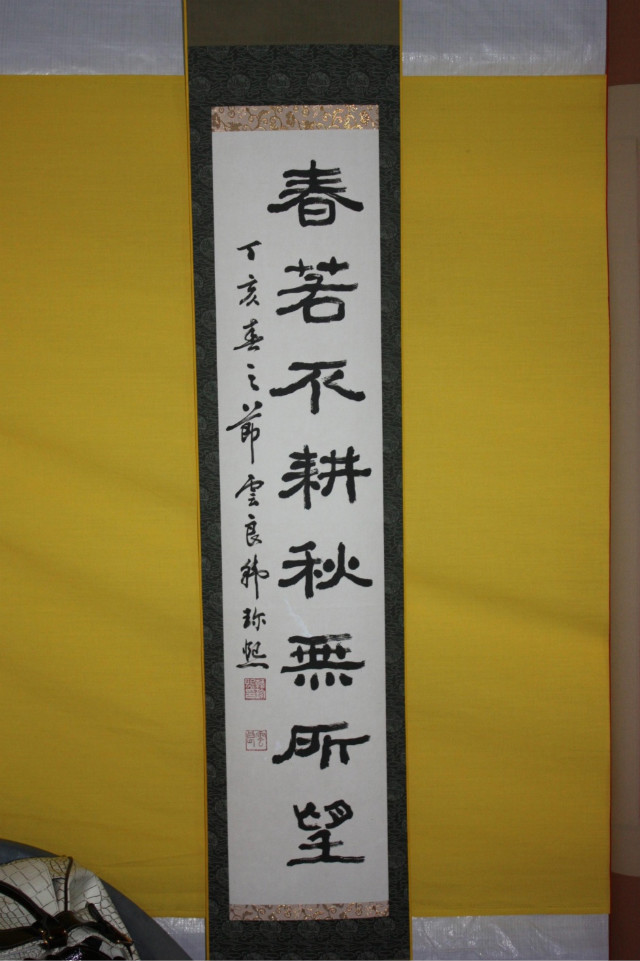 春若不耕秋無所望
丁亥春之節雲良韓珍熙